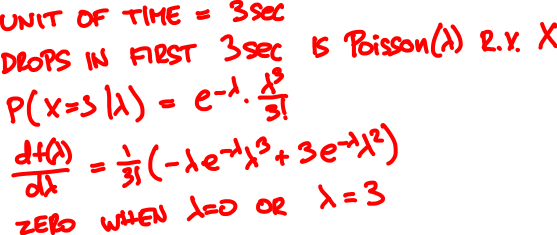 UNIT OF TIME = 3sec
DROPS IN FIRST 3sec IS Poisson(λ) R.V. X
P(X=3|λ) = e^{-λ} · λ^3/3!
df(λ)/dλ = 1/3! (-λe^{-λ}λ^3 + 3e^{-λ}λ^2)
ZERO WHEN λ=0 OR λ=3